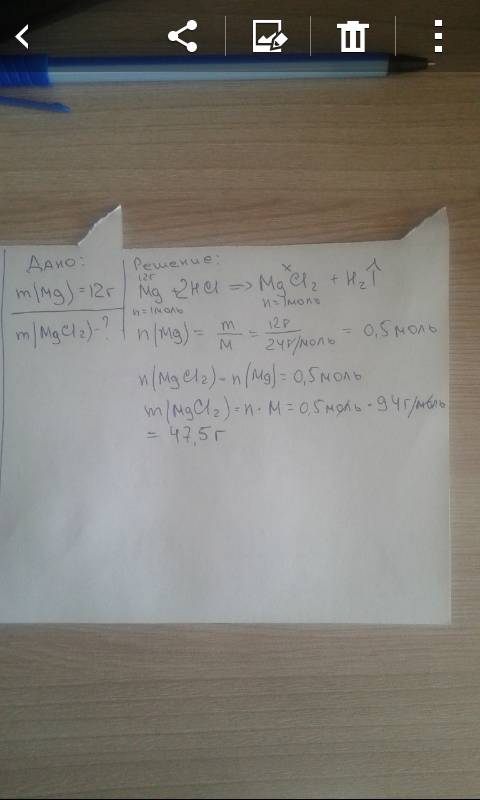 Дано:
m(Mg) = 12г
m(MgCl2)-?
Решение:
12г x
Mg + 2HCl => MgCl2 + H2↑
n=1моль n=1моль
n(Mg) = m/M = 12г/24г/моль = 0,5 моль
n(MgCl2) = n(Mg) = 0,5моль
m(MgCl2) = n · M = 0,5моль · 94г/моль
= 47,5г